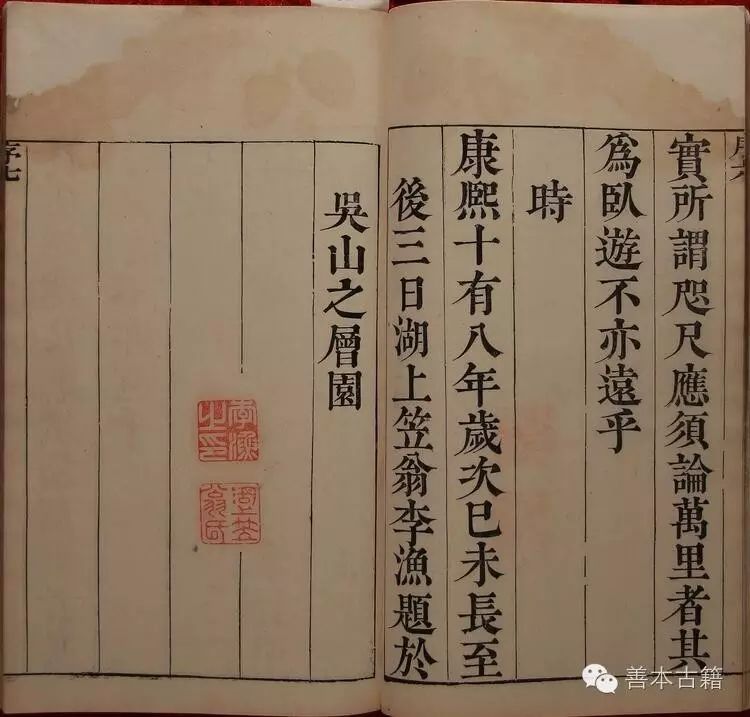 實所謂咫尺應須論萬里者其
為臥遊不亦遠乎
時
康熙十有八年歲次己未長至
後三日湖上笠翁李漁題於
吳山之層園
李漁之印
笠翁氏
序七
善本古籍